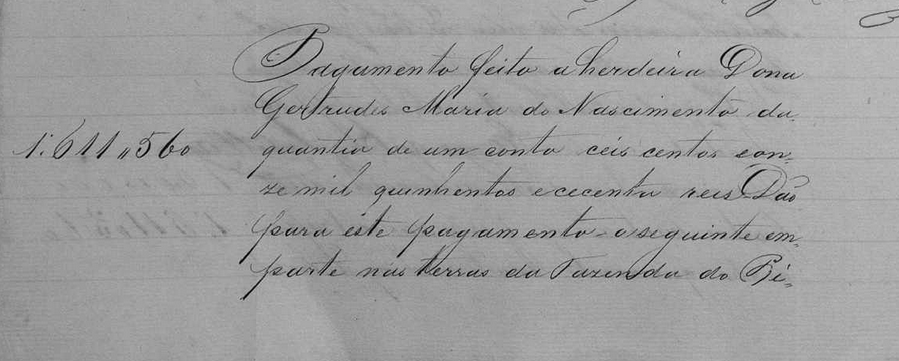 Pagamento feito a herdeira Dona
Gertrudes Maria do Nascimento da
1:611"560 quantia de um conto ceis centos eon-
ze mil quinhentos e cecenta reis Dão
para este pagamento o seguinte em
parte nas terras da Fazenda do Ri-